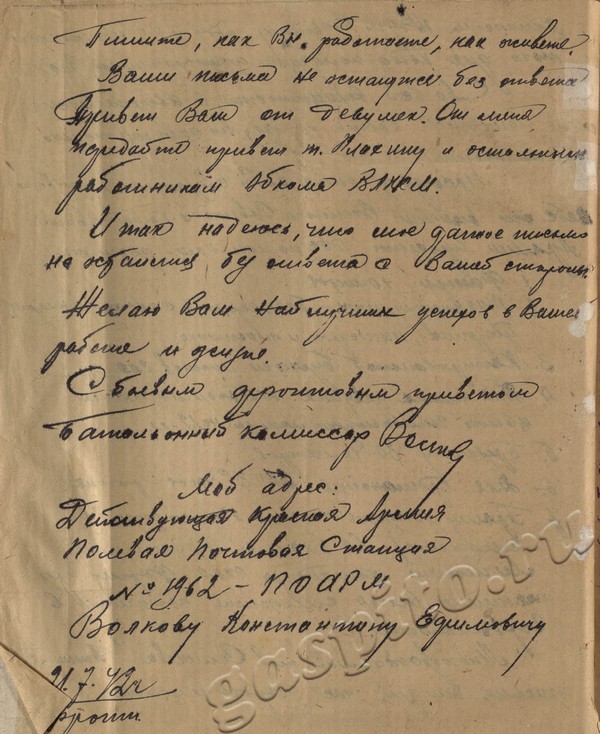 Пишите, как Вы работаете, как живете.
Ваши письма не останутся без ответа
Привет Вам от девушек. От меня
передайте привет т. и остальным
работникам Обкома ВЛКСМ.
Итак надеюсь, что мое данное письмо
не останется без ответа с Вашей стороны.
Желаю Вам наилучших успехов в Вашей
работе и жизни.
С боевым фронтовым приветом
Батальонный комиссар
Мой адрес:
Действующая Красная Армия
Полевая Почтовая Станция
№ 1962 – ПОАРМ
Волкову Константину Ефимовичу
21.7.42г
фронт.
gaspito.ru